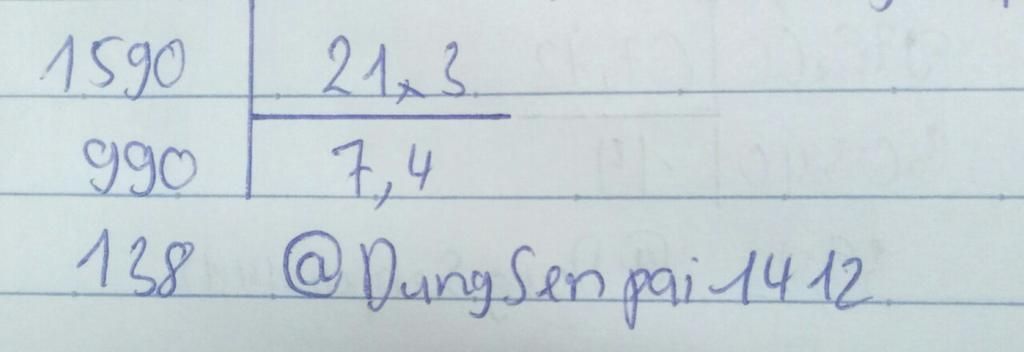 1590 21,3
990 7,4
138 @DungSenpai1412